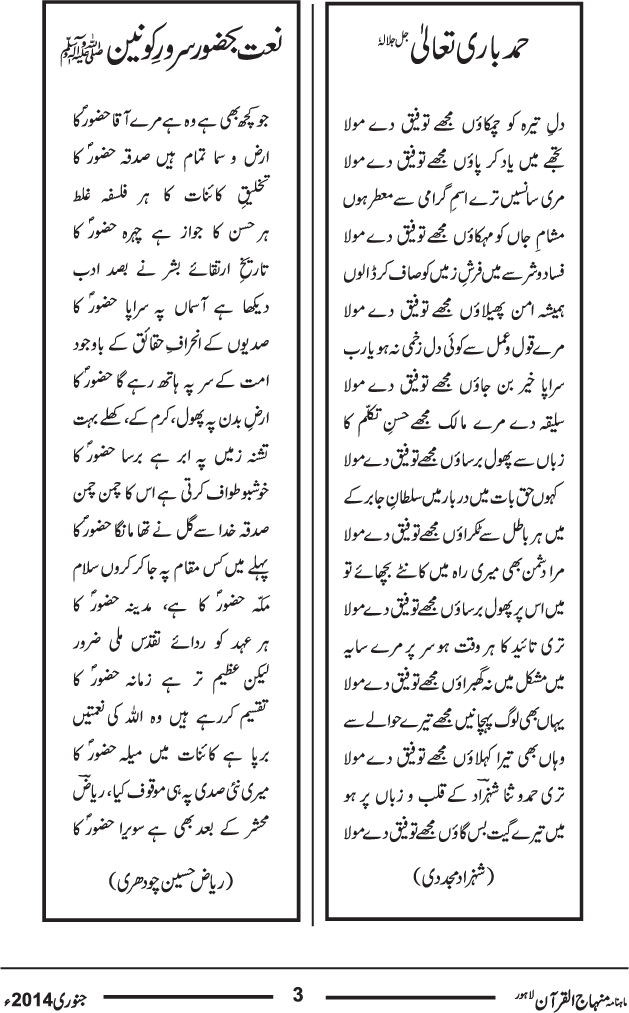 حمد باری تعالیٰ جل جلالہٗ
دلِ تیرہ کو چمکاؤں مجھے توفیق دے مولا
تجھے میں یاد کر پاؤں مجھے توفیق دے مولا
مری سانسیں ترے اسمِ گرامی سے معطر ہوں
مشامِ جاں کو مہکاؤں مجھے توفیق دے مولا
فساد و شر سے میں فرشِ زمیں کو صاف کر ڈالوں
ہمیشہ امن پھیلاؤں مجھے توفیق دے مولا
مرے قول و عمل سے کوئی دل زخمی نہ ہو یارب
سراپا خیر بن جاؤں مجھے توفیق دے مولا
سلیقہ دے مرے مالک مجھے حسنِ تکلّم کا
زباں سے پھول برساؤں مجھے توفیق دے مولا
کہوں حق بات میں دربار میں سلطانِ جابر کے
میں ہر باطل سے ٹکراؤں مجھے توفیق دے مولا
مرا دشمن بھی میری راہ میں کانٹے بچھائے تو
میں اس پر پھول برساؤں مجھے توفیق دے مولا
تری تائید کا ہر وقت ہو سر پر مرے سایہ
میں مشکل میں نہ گھبراؤں مجھے توفیق دے مولا
یہاں بھی لوگ پہچانیں مجھے تیرے حوالے سے
وہاں بھی تیرا کہلاؤں مجھے توفیق دے مولا
تری حمد و ثنا شہزادؔ کے قلب و زباں پر ہو
میں تیرے گیت بس گاؤں مجھے توفیق دے مولا
(شہزاد مجددی)
نعت بحضور سرورِ کونین ﷺ
جو کچھ بھی ہے وہ ہے مرے آقا حضورؐ کا
ارض و سما تمام ہیں صدقہ حضورؐ کا
تخلیقِ کائنات کا ہر فلسفہ غلط
ہر حسن کا جواز ہے چہرہ حضورؐ کا
تاریخِ ارتقائے بشر نے بصد ادب
دیکھا ہے آسماں پہ سراپا حضورؐ کا
صدیوں کے انحرافِ حقائق کے باوجود
امت کے سر پہ ہاتھ رہے گا حضورؐ کا
ارضِ بدن پہ پھول، کرم کے، کھلے بہت
تشنہ زمیں پہ ابر ہے برسا حضورؐ کا
خوشبو طواف کرتی ہے اس کا چمن چمن
صدقہ خدا سے گل نے تھا مانگا حضورؐ کا
پہلے میں کس مقام پہ جا کر کروں سلام
مکّہ حضورؐ کا ہے، مدینہ حضورؐ کا
ہر عہد کو ردائے تقدّس ملی ضرور
لیکن عظیم تر ہے زمانہ حضورؐ کا
تقسیم کررہے ہیں وہ اللہ کی نعمتیں
برپا ہے کائنات میں میلہ حضورؐ کا
میری نئی صدی پہ ہی موقوف کیا، ریاضؔ
محشر کے بعد بھی ہے سویرا حضورؐ کا
(ریاض حسین چودھری)
ماہنامہ منہاج القرآن لاہور 3 جنوری 2014ء